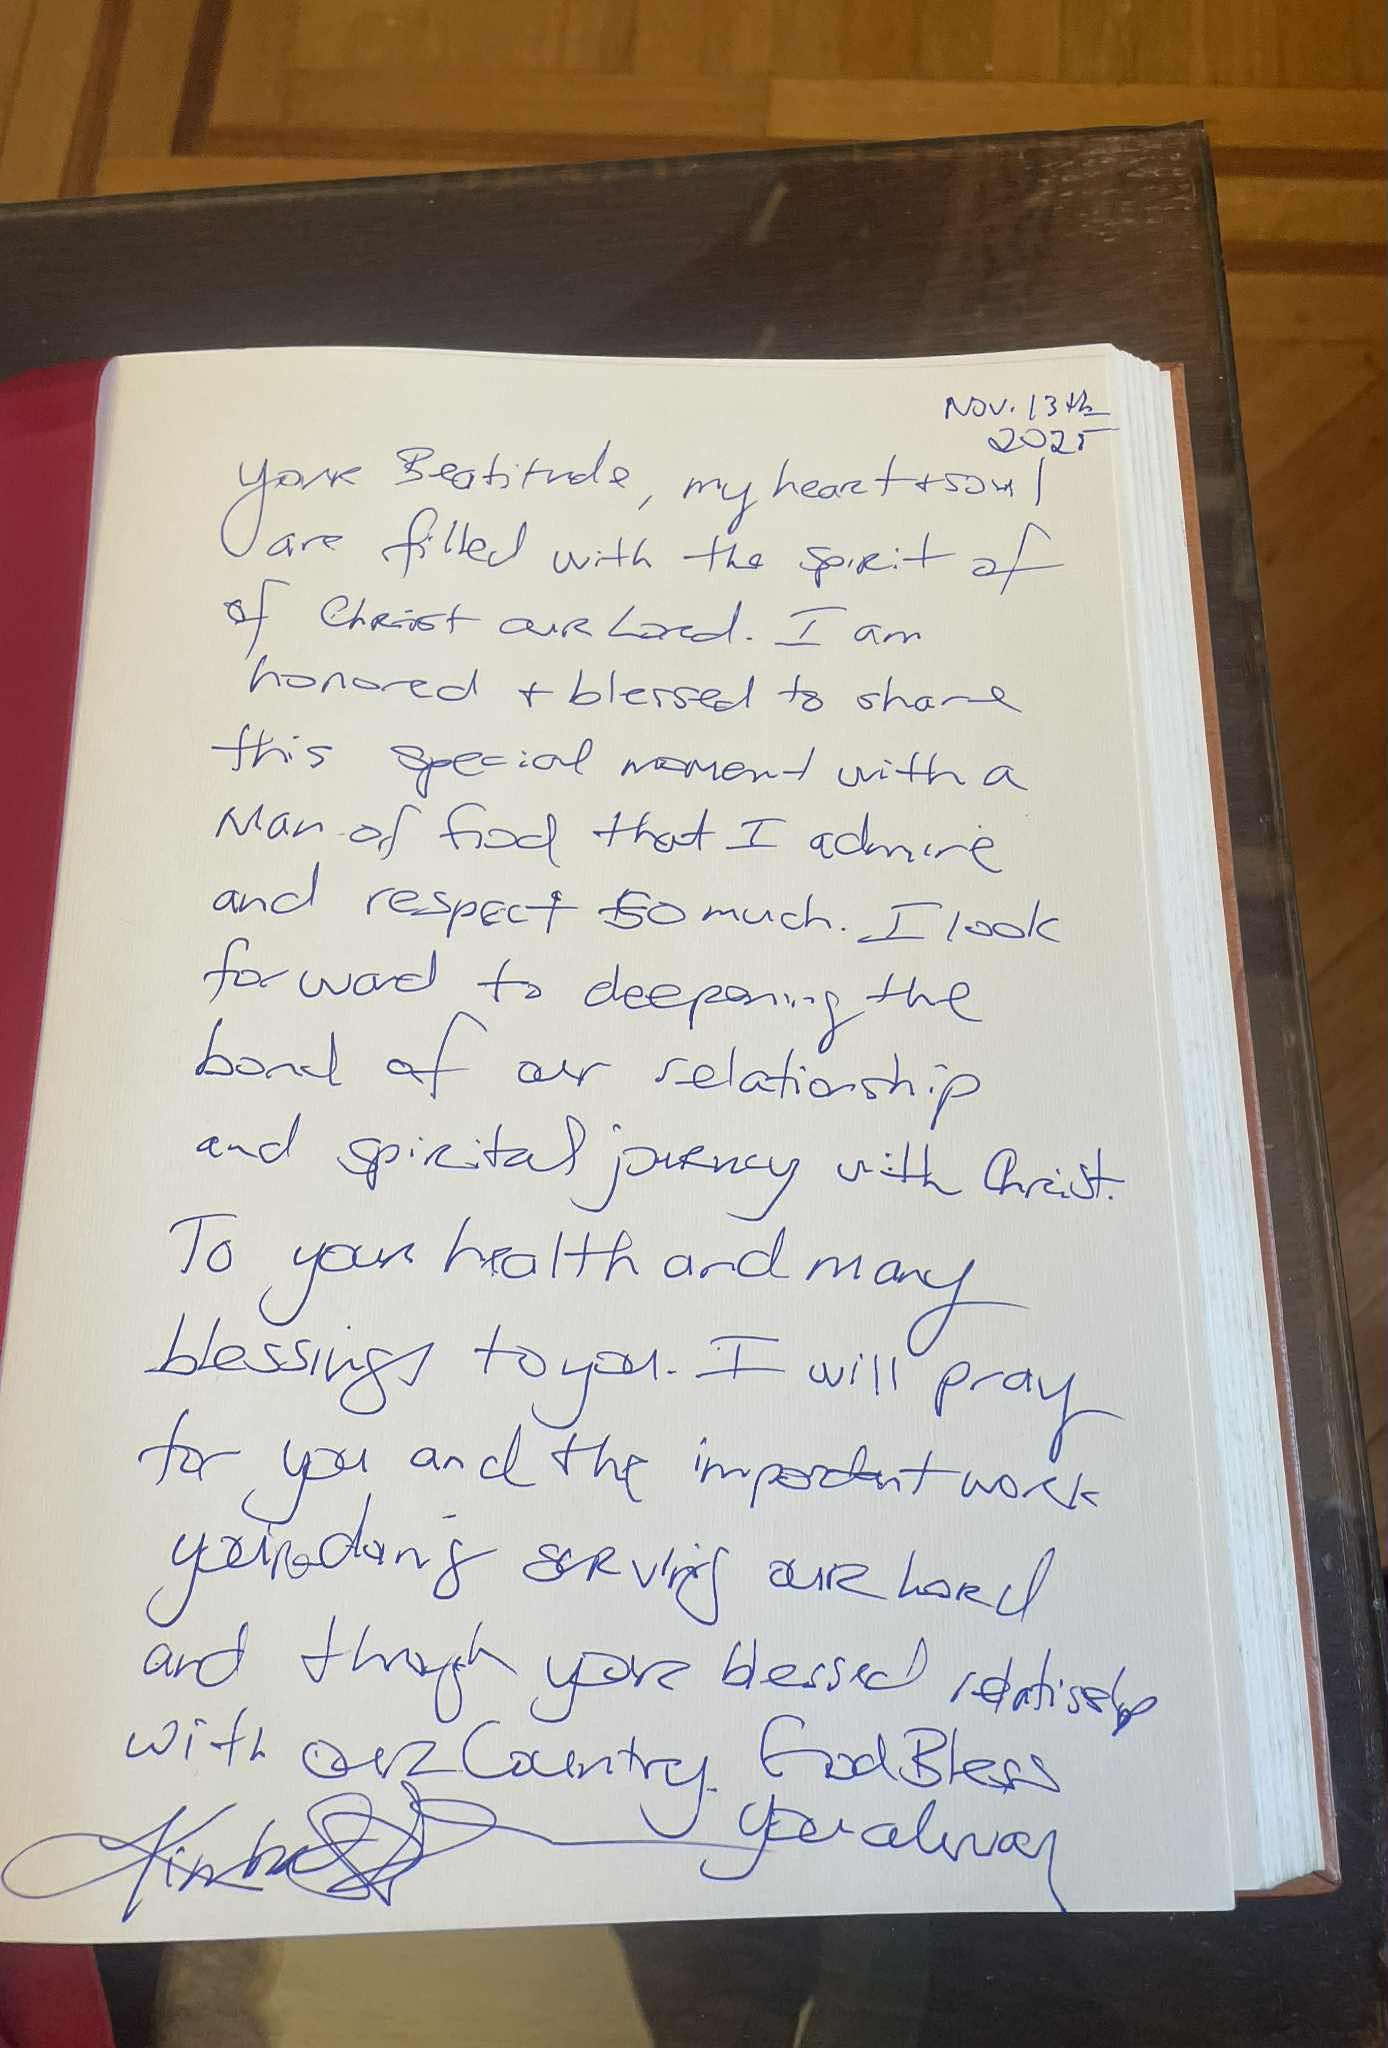 Nov. 13th
2025
Your Beatitude, my heart + soul
are filled with the spirit of
of Christ our Lord. I am
honored + blessed to share
this special moment with a
Man of God that I admire
and respect so much. I look
forward to deepening the
bond of our relationship
and spirital journey with Christ.
To your health and many
blessings to you. I will pray
for you and the important work
you're doing serving our Lord
and through your blessed relationship
with our Country. God Bless
you alway